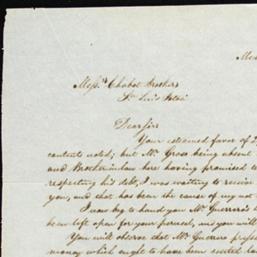 Mess.rs Chabot Brothers
Sn Luis Potosi
Dear Sirs
Your esteemed favor of 2
contents noted; but Mr. Gross being absent
and Brotherinlaw here having promised to
respecting his debt, I was waiting to receive
you, and that has been the cause of my not
I now beg to hand you Mr. Guerrero's
been left open for your perusal, and you will
You will observe that Mr. Guerrero
money which ought to have been